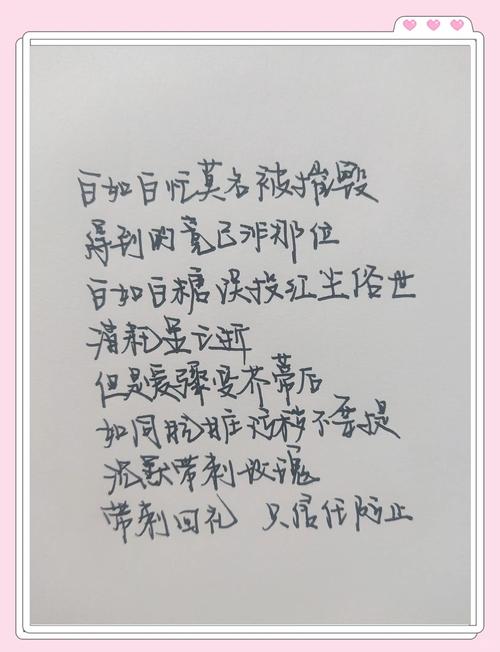 白如白忙莫名被摧毁
得到的竟已非那位
白如白糖误投红尘俗世
消耗里亡逝
但是爱骤变芥蒂后
如同肮脏污秽不要提
沉默带刺玫瑰
带刺回礼 只信任防止